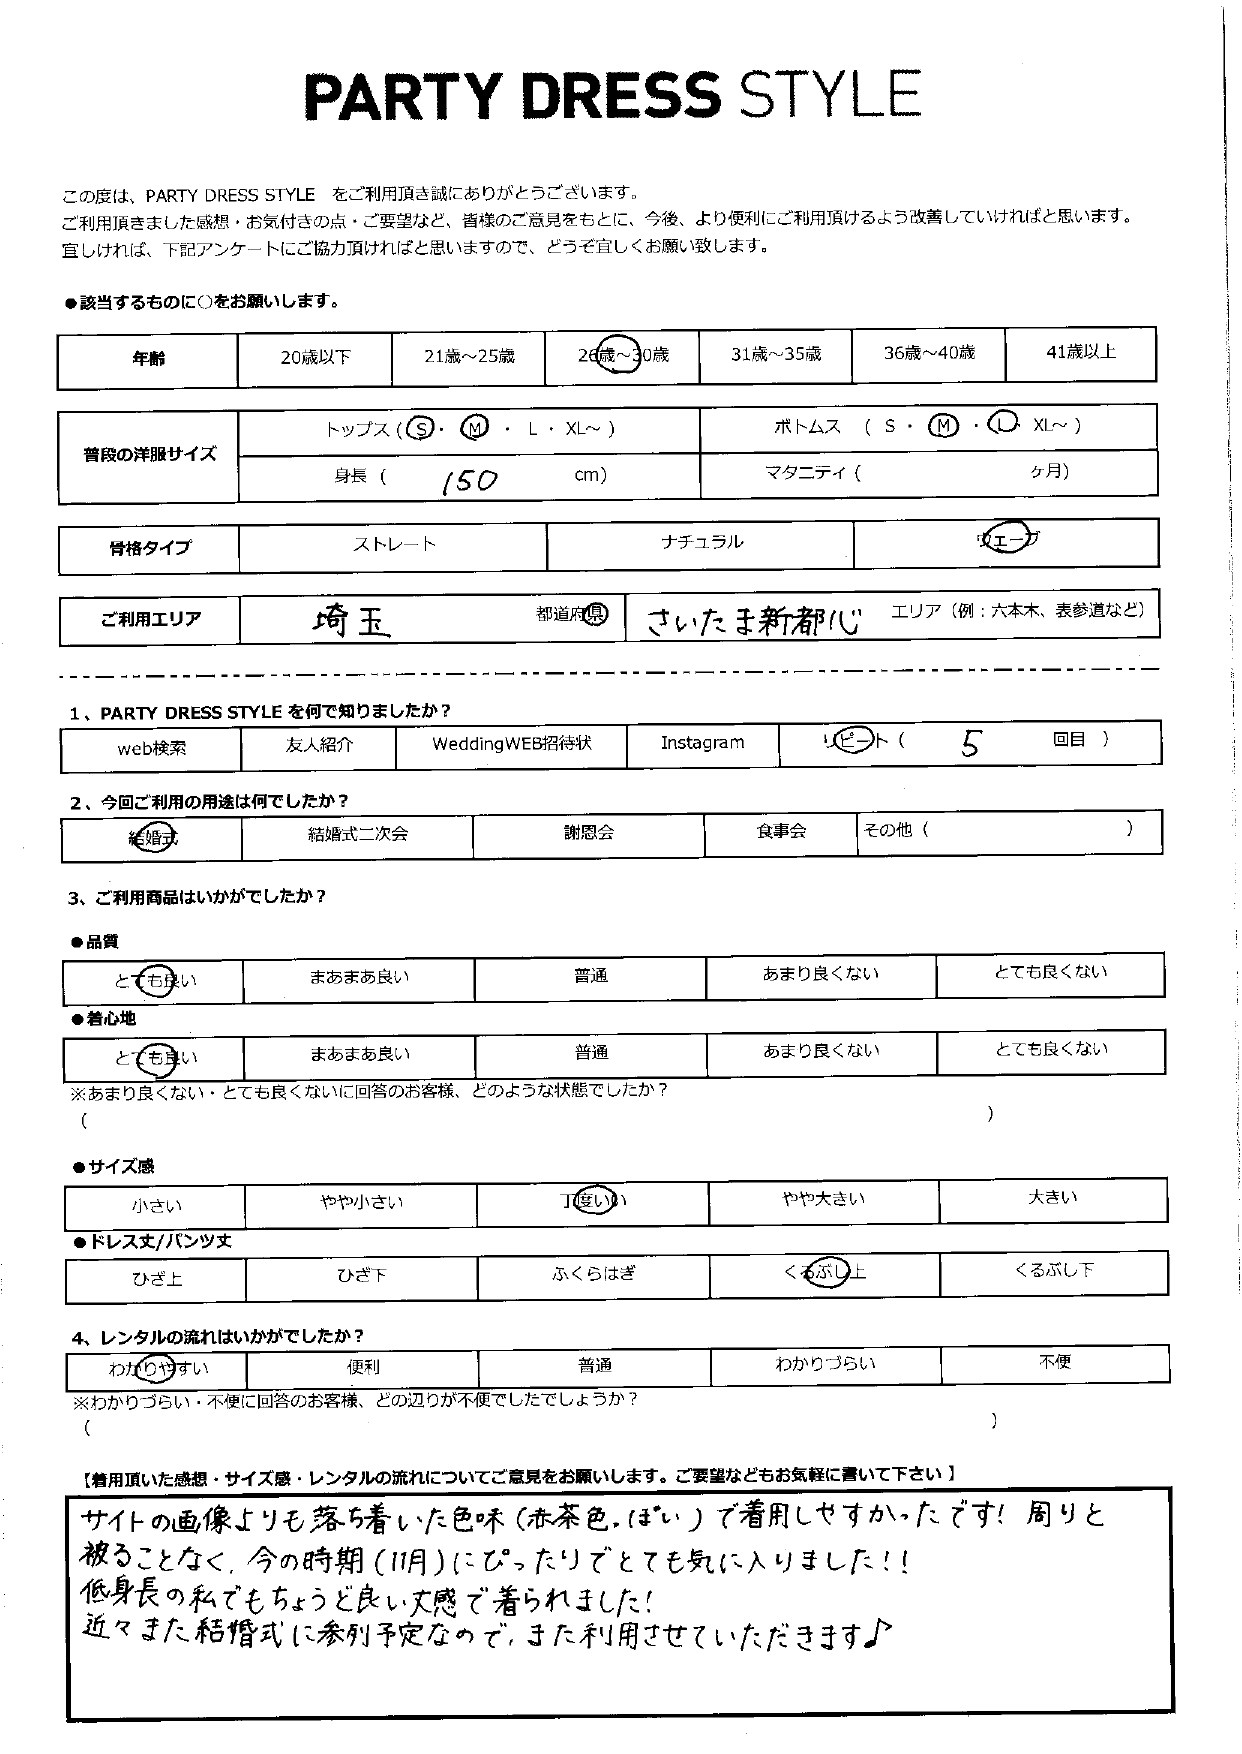 PARTY DRESS STYLE
この度は、PARTY DRESS STYLE をご利用頂き誠にありがとうございます。
ご利用頂きました感想・お気付きの点・ご要望など、皆様のご意見をもとに、今後、より便利にご利用頂けるよう改善していければと思います。
宜しければ、下記アンケートにご協力頂ければと思いますので、どうぞ宜しくお願い致します。
●該当するものに○をお願いします。
年齢 20歳以下 21歳～25歳 26歳～30歳 31歳～35歳 36歳～40歳 41歳以上
普段の洋服サイズ トップス (S・ M ・ L ・ XL～ ) ボトムス ( S ・ M ・ L・ XL～ )
身長 ( 150 cm) マタニティ ( ヶ月)
骨格タイプ ストレート ナチュラル ウェーブ
ご利用エリア 埼玉 都道府県 さいたま新都心 エリア（例：六本木、表参道など）
1、PARTY DRESS STYLE を何で知りましたか？
web検索 友人紹介 WeddingWEB招待状 Instagram リピート ( 5 回目 )
2、今回ご利用の用途は何でしたか？
結婚式 結婚式二次会 謝恩会 食事会 その他 ( )
3、ご利用商品はいかがでしたか？
●品質
とても良い まあまあ良い 普通 あまり良くない とても良くない
●着心地
とても良い まあまあ良い 普通 あまり良くない とても良くない
※あまり良くない・とても良くないに回答のお客様、どのような状態でしたか？
( )
●サイズ感
小さい やや小さい 丁度いい やや大きい 大きい
●ドレス丈/パンツ丈
ひざ上 ひざ下 ふくらはぎ くるぶし上 くるぶし下
4、レンタルの流れはいかがでしたか？
わかりやすい 便利 普通 わかりづらい 不便
※わかりづらい・不便に回答のお客様、どの辺りが不便でしたでしょうか？
( )
【着用頂いた感想・サイズ感・レンタルの流れについてご意見をお願いします。ご要望などもお気軽に書いて下さい 】
サイトの画像よりも落ち着いた色味(赤茶色っぽい)で着用しやすかったです! 周りと
被ることなく、今の時期(11月)にぴったりでとても気に入りました!!
低身長の私でもちょうど良い丈感で着られました!
近々また結婚式に参列予定なので、また利用させていただきます♪